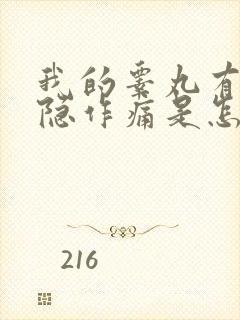 我的睾丸有
隐作痛是怎
216